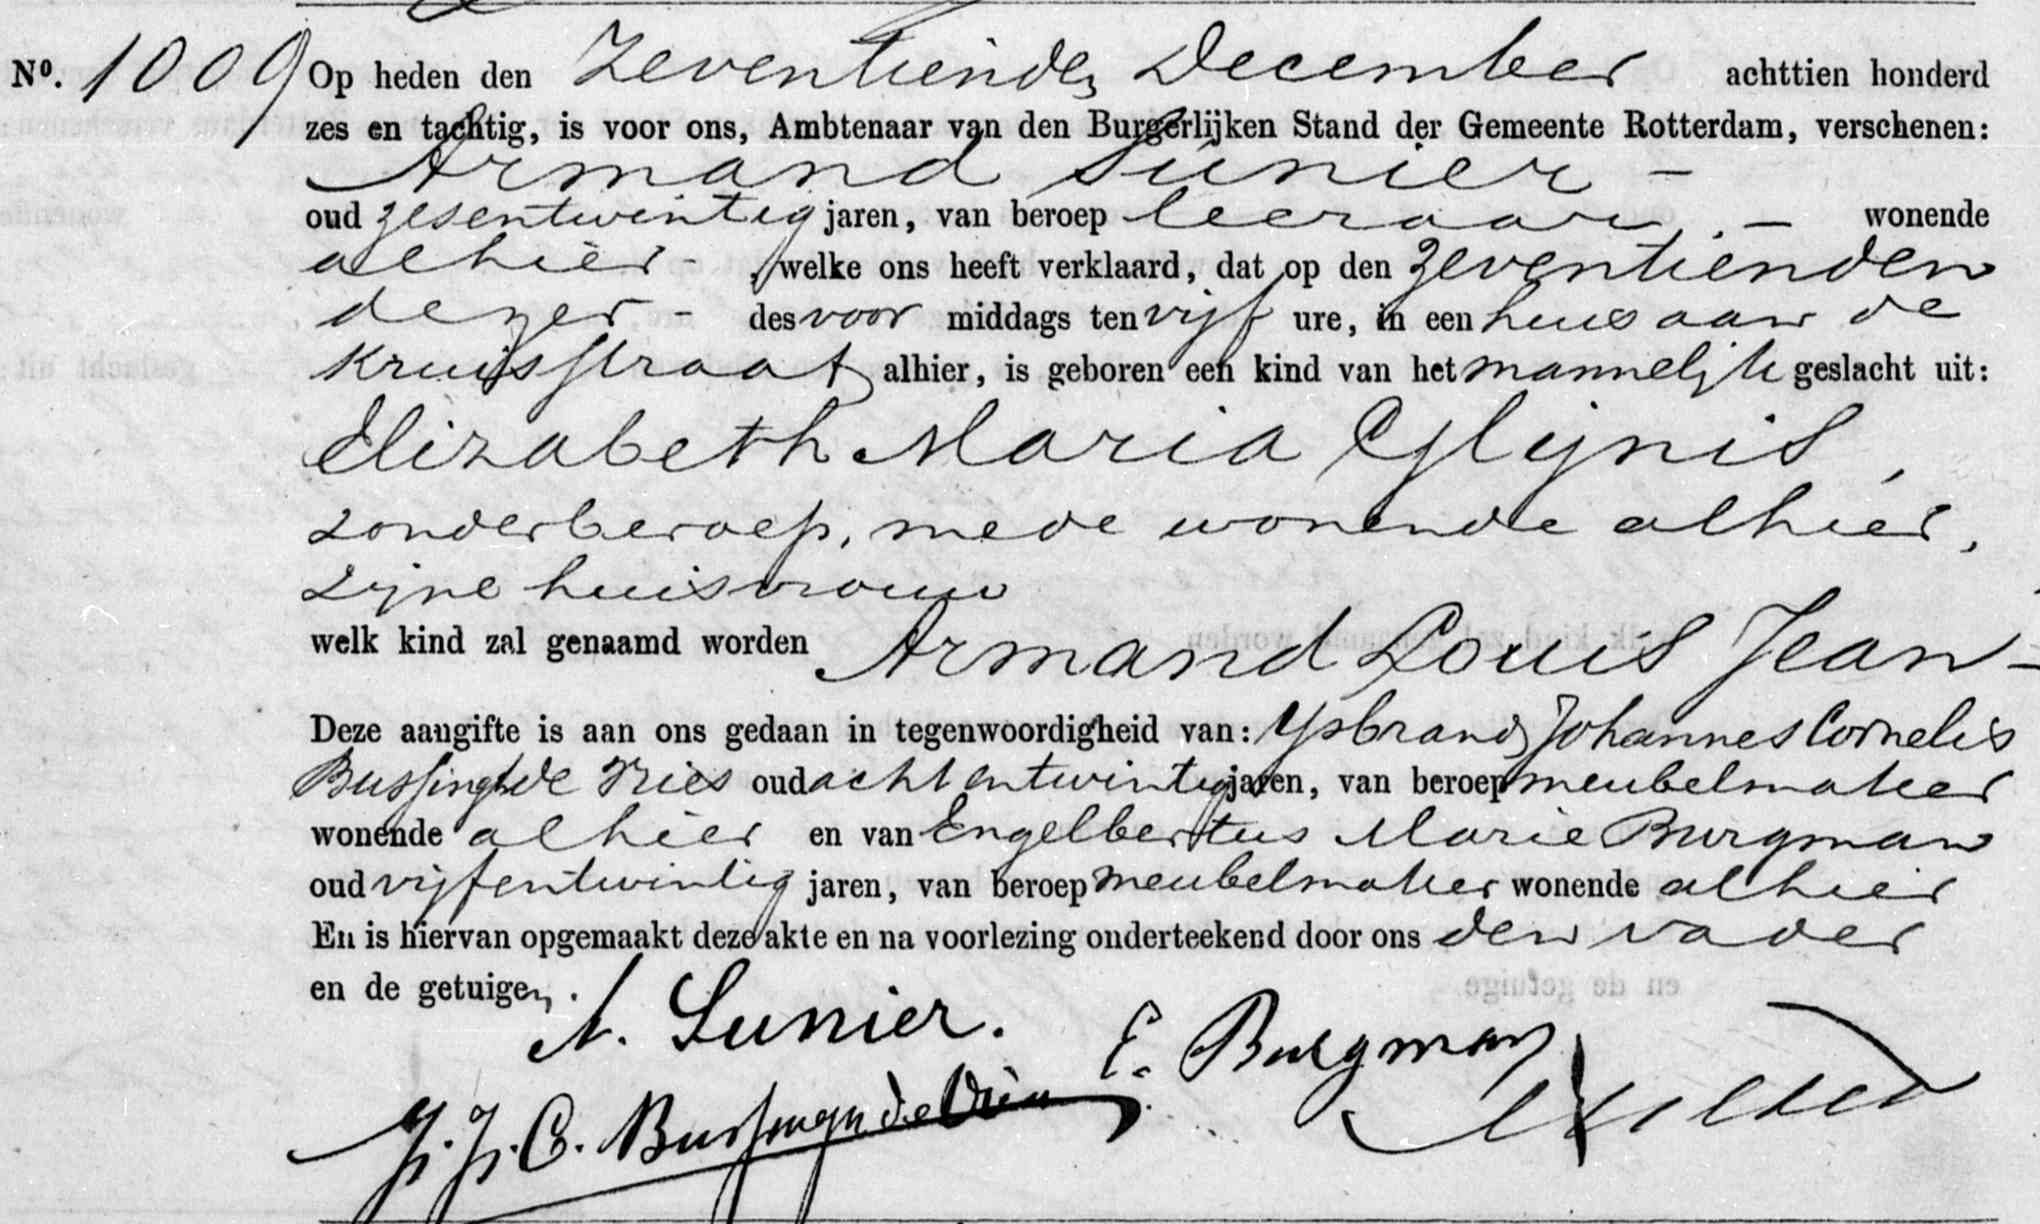 No. 1009 Op heden den Zeventienden December achttien honderd
zes en tachtig, is voor ons, Ambtenaar van den Burgerlijken Stand der Gemeente Rotterdam, verschenen:
Armand Sunier -
oud zesentwintig jaren, van beroep leeraar, - wonende
alhier - , welke ons heeft verklaard, dat op den zeventienden
dezer - des voor middags ten vijf ure, in een huis aan de
Kruisstraat alhier, is geboren een kind van het mannelijk geslacht uit:
Elizabeth Maria Glijnis,
zonder beroep, mede wonende alhier,
zijne huisvrouw
welk kind zal genaamd worden Armand Louis Jean -
Deze aangifte is aan ons gedaan in tegenwoordigheid van: Ysbrand Johannes Cornelis
Bussingh de Vries oud acht entwintig jaren, van beroep meubelmaker
wonende alhier en van Engelbertus Marie Burgman
oud vijfentwintig jaren, van beroep meubelmaker wonende alhier
En is hiervan opgemaakt deze akte en na voorlezing onderteekend door ons den vader
en de getuigen.
A. Sunier. E. Burgman
Y. J. C. Bussingh de Vries